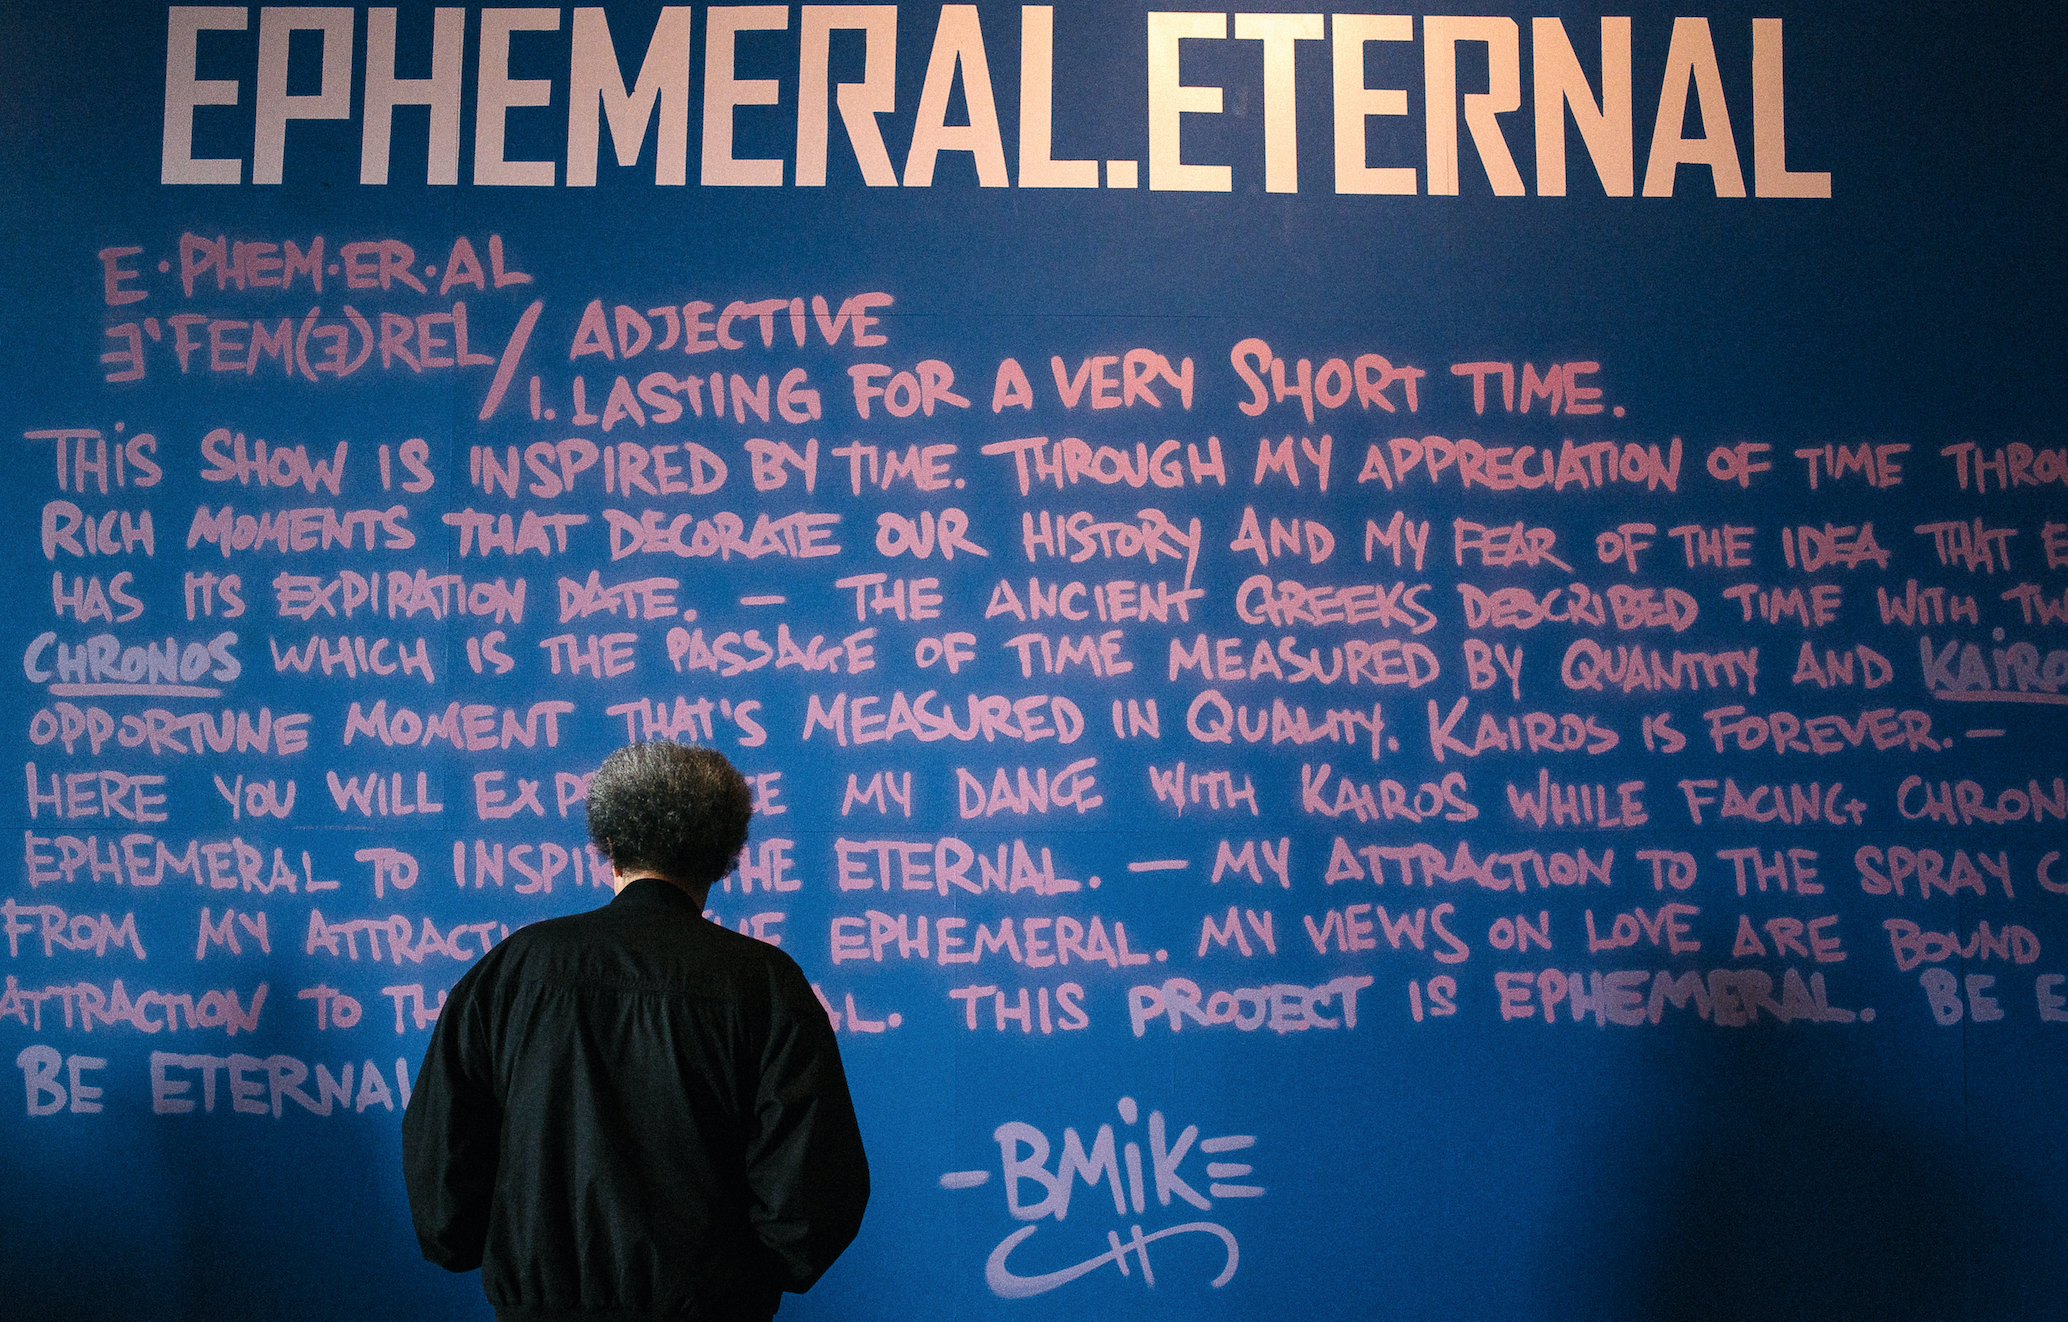 EPHEMERAL.ETERNAL
E·PHEM·ER·AL
Ǝ'FEM(Ǝ)REL/ ADJECTIVE
1. LASTING FOR A VERY SHORT TIME.
THiS SHOW IS INSPIRED BY TIME. THROUGH MY APPRECIATION OF TIME
RICH MOMENTS THAT DECORATE OUR HISTORY AND MY FEAR OF THE IDEA THAT
HAS ITS EXPIRATION DATE. — THE ANCIENT GREEKS DESCRIBED TIME WITH
CHRONOS WHICH IS THE PASSAGE OF TIME MEASURED BY QUANTITY AND KAiRO
OPPORTUNE MOMENT THAT'S MEASURED IN QUALITY. KAIROS IS FOREVER. —
HERE YOU WILL MY DANCE WITH KAIROS WHILE FACING CHRON
EPHEMERAL TO INSPIR THE ETERNAL. — MY ATTRACTION TO THE SPRAY
FROM MY ATTRACTI EPHEMERAL. MY VIEWS ON LOVE ARE BOUND
ATTRACTION TO TH AL. THIS PROJECT IS EPHEMERAL. BE
BE ETERNAL
-BMiKE